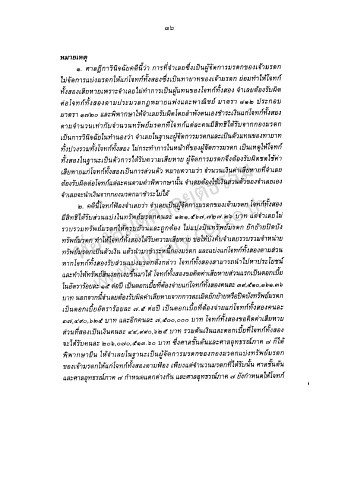 ๓๖
หมายเหตุ
๑. ศาลฎีกาวินิจฉัยคดีนี้ว่า การที่จำเลยซึ่งเป็นผู้จัดการมรดกของเจ้ามรดก
ไม่จัดการแบ่งมรดกให้แก่โจทก์ทั้งสองซึ่งเป็นทายาทของเจ้ามรดก ย่อมทำให้โจทก์
ทั้งสองเสียหายเพราะจำเลยไม่ทำการเป็นผู้แทนของโจทก์ทั้งสอง จำเลยต้องรับผิด
ต่อโจทก์ทั้งสองตามประมวลกฎหมายแพ่งและพาณิชย์ มาตรา ๘๑๒ ประกอบ
มาตรา ๑๗๒๐ และพิพากษาให้จำเลยรับผิดโดยลำพังตนเองชำระเงินแก่โจทก์ทั้งสอง
ตามจำนวนเท่ากับจำนวนทรัพย์มรดกที่โจทก์แต่ละคนมีสิทธิได้รับจากกองมรดก
เป็นการวินิจฉัยในทำนองว่า จำเลยในฐานะผู้จัดการมรดกและเป็นตัวแทนของทายาท
ทั้งปวงรวมทั้งโจทก์ทั้งสอง ไม่กระทำการในหน้าที่ของผู้จัดการมรดก เป็นเหตุให้โจทก์
ทั้งสองในฐานะเป็นตัวการได้รับความเสียหาย ผู้จัดการมรดกจึงต้องรับผิดชดใช้ค่า
เสียหายแก่โจทก์ทั้งสองเป็นการส่วนตัว หมายความว่า จำนวนเงินค่าเสียหายที่จำเลย
ต้องรับผิดต่อโจทก์แต่ละคนตามคำพิพากษานั้น จำเลยต้องใช้เงินส่วนตัวของจำเลยเอง
จำเลยจะนำเงินจากกองมรดกมาชำระไม่ได้
๒. คดีนี้โจทก์ฟ้องจำเลยว่า จำเลยเป็นผู้จัดการมรดกของเจ้ามรดก โจทก์ทั้งสอง
บาท แต่จำเลยไม่
รวบรวมทรัพย์มรดกให้ครบถ้วนและถูกต้อง ไม่แบ่งปันทรัพย์มรดก ยักย้ายปิดบัง
ทรัพย์มรดก ทำให้โจทก์ทั้งสองได้รับความเสียหาย ขอให้บังคับจำเลยรวบรวมจำหน่าย
ทรัพย์มรดกเป็นตัวเงิน แล้วนำมาชำระหนี้กองมรดก และแบ่งแก่โจทก์ทั้งสองตามส่วน
หากโจทก์ทั้งสองรับส่วนแบ่งมรดกดังกล่าว โจทก์ทั้งสองสามารถนำไปหาประโยชน์
และทำให้ทรัพย์สินงอกเงยขึ้นมาได้ โจทก์ทั้งสองขอคิดค่าเสียหายส่วนแรกเป็นดอกเบี้ย
บาท นอกจากนี้จำเลยต้องรับผิดค่าเสียหายจากการละเมิดยักย้ายหรือปิดบังทรัพย์มรดก
เป็นดอกเบี้ยอัตราร้อยละ ๗.๕ ต่อปี เป็นดอกเบี้ยที่ต้องจ่ายแก่โจทก์ทั้งสองคนละ
จะได้รับคนละ
พิพากษายืน ให้จำเลยในฐานะเป็นผู้จัดการมรดกของกองมรดกแบ่งทรัพย์มรดก
ของเจ้ามรดกให้แก่โจทก์ทั้งสองตามฟ้อง เพียงแต่จำนวนมรดกที่ให้รับนั้น ศาลชั้นต้น
และศาลอุทธรณ์ภาค ๗ กำหนดแตกต่างกัน และศาลอุทธรณ์ภาค ๗ ยังกำหนดให้โจทก์